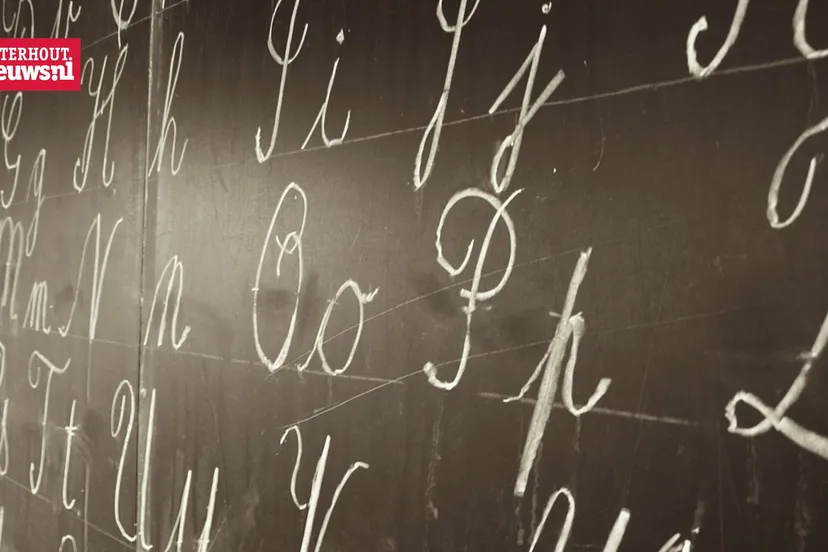 TERHOUT.
euws.nl
H h I i J j
G g
M m N n O o P p
T t U u V